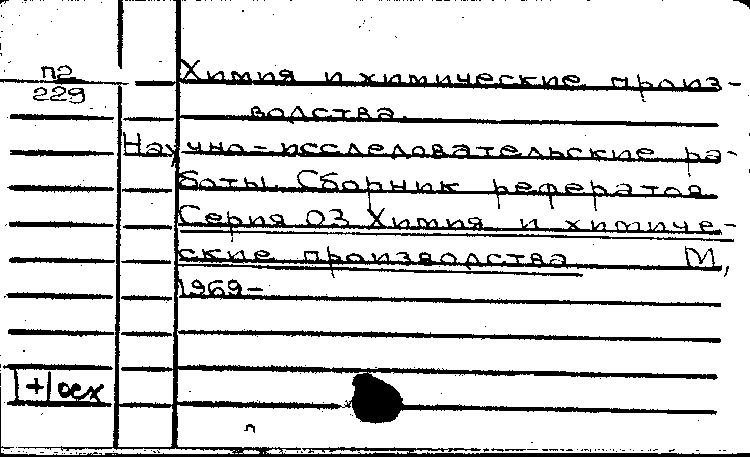 п2
229
Химия и химические произ-
водства.
Научно-исследовательские ра-
боты. Сборник рефератов.
Серия 03 Химия и химиче-
ские производства М,
1969-
|+| осх